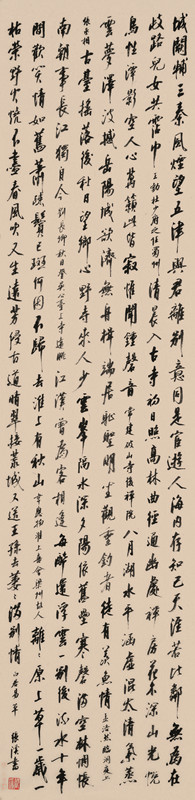 城闕輔三秦風煙望五津與君離別意同是宦遊人海内存知己天涯若比鄰無為在
歧路兒女共霑巾 王勃杜少府之任蜀州 清晨入古寺初日照高林曲徑通幽處禪房花木深山光悦
鳥性潭影空人心萬籟此皆寂惟聞鐘磬音 常建破山寺後禪院 八月湖水平涵虛混太清氣蒸
雲夢澤波撼岳陽城欲濟無舟楫端居恥聖明坐觀垂釣者徒有羨魚情 孟浩然臨洞庭上
張丞相 古臺摇落後秋日望鄉心野寺來人少雲峰隔水深夕陽依舊壘寒磬滿空林惆悵
南朝事長江獨自今 劉長卿秋日登吳公臺上寺遠眺 江漢曾為客相逢每醉還浮雲一別後流水十年
間歡笑情如舊蕭疏鬢已斑何因不歸去淮上有秋山 韋應物淮上喜會梁州故人 離離原上草一歲一
枯榮野火燒不盡春風吹又生遠芳侵古道晴翠接荒城又送王孫去萋萋滿別情 白居易草 張書